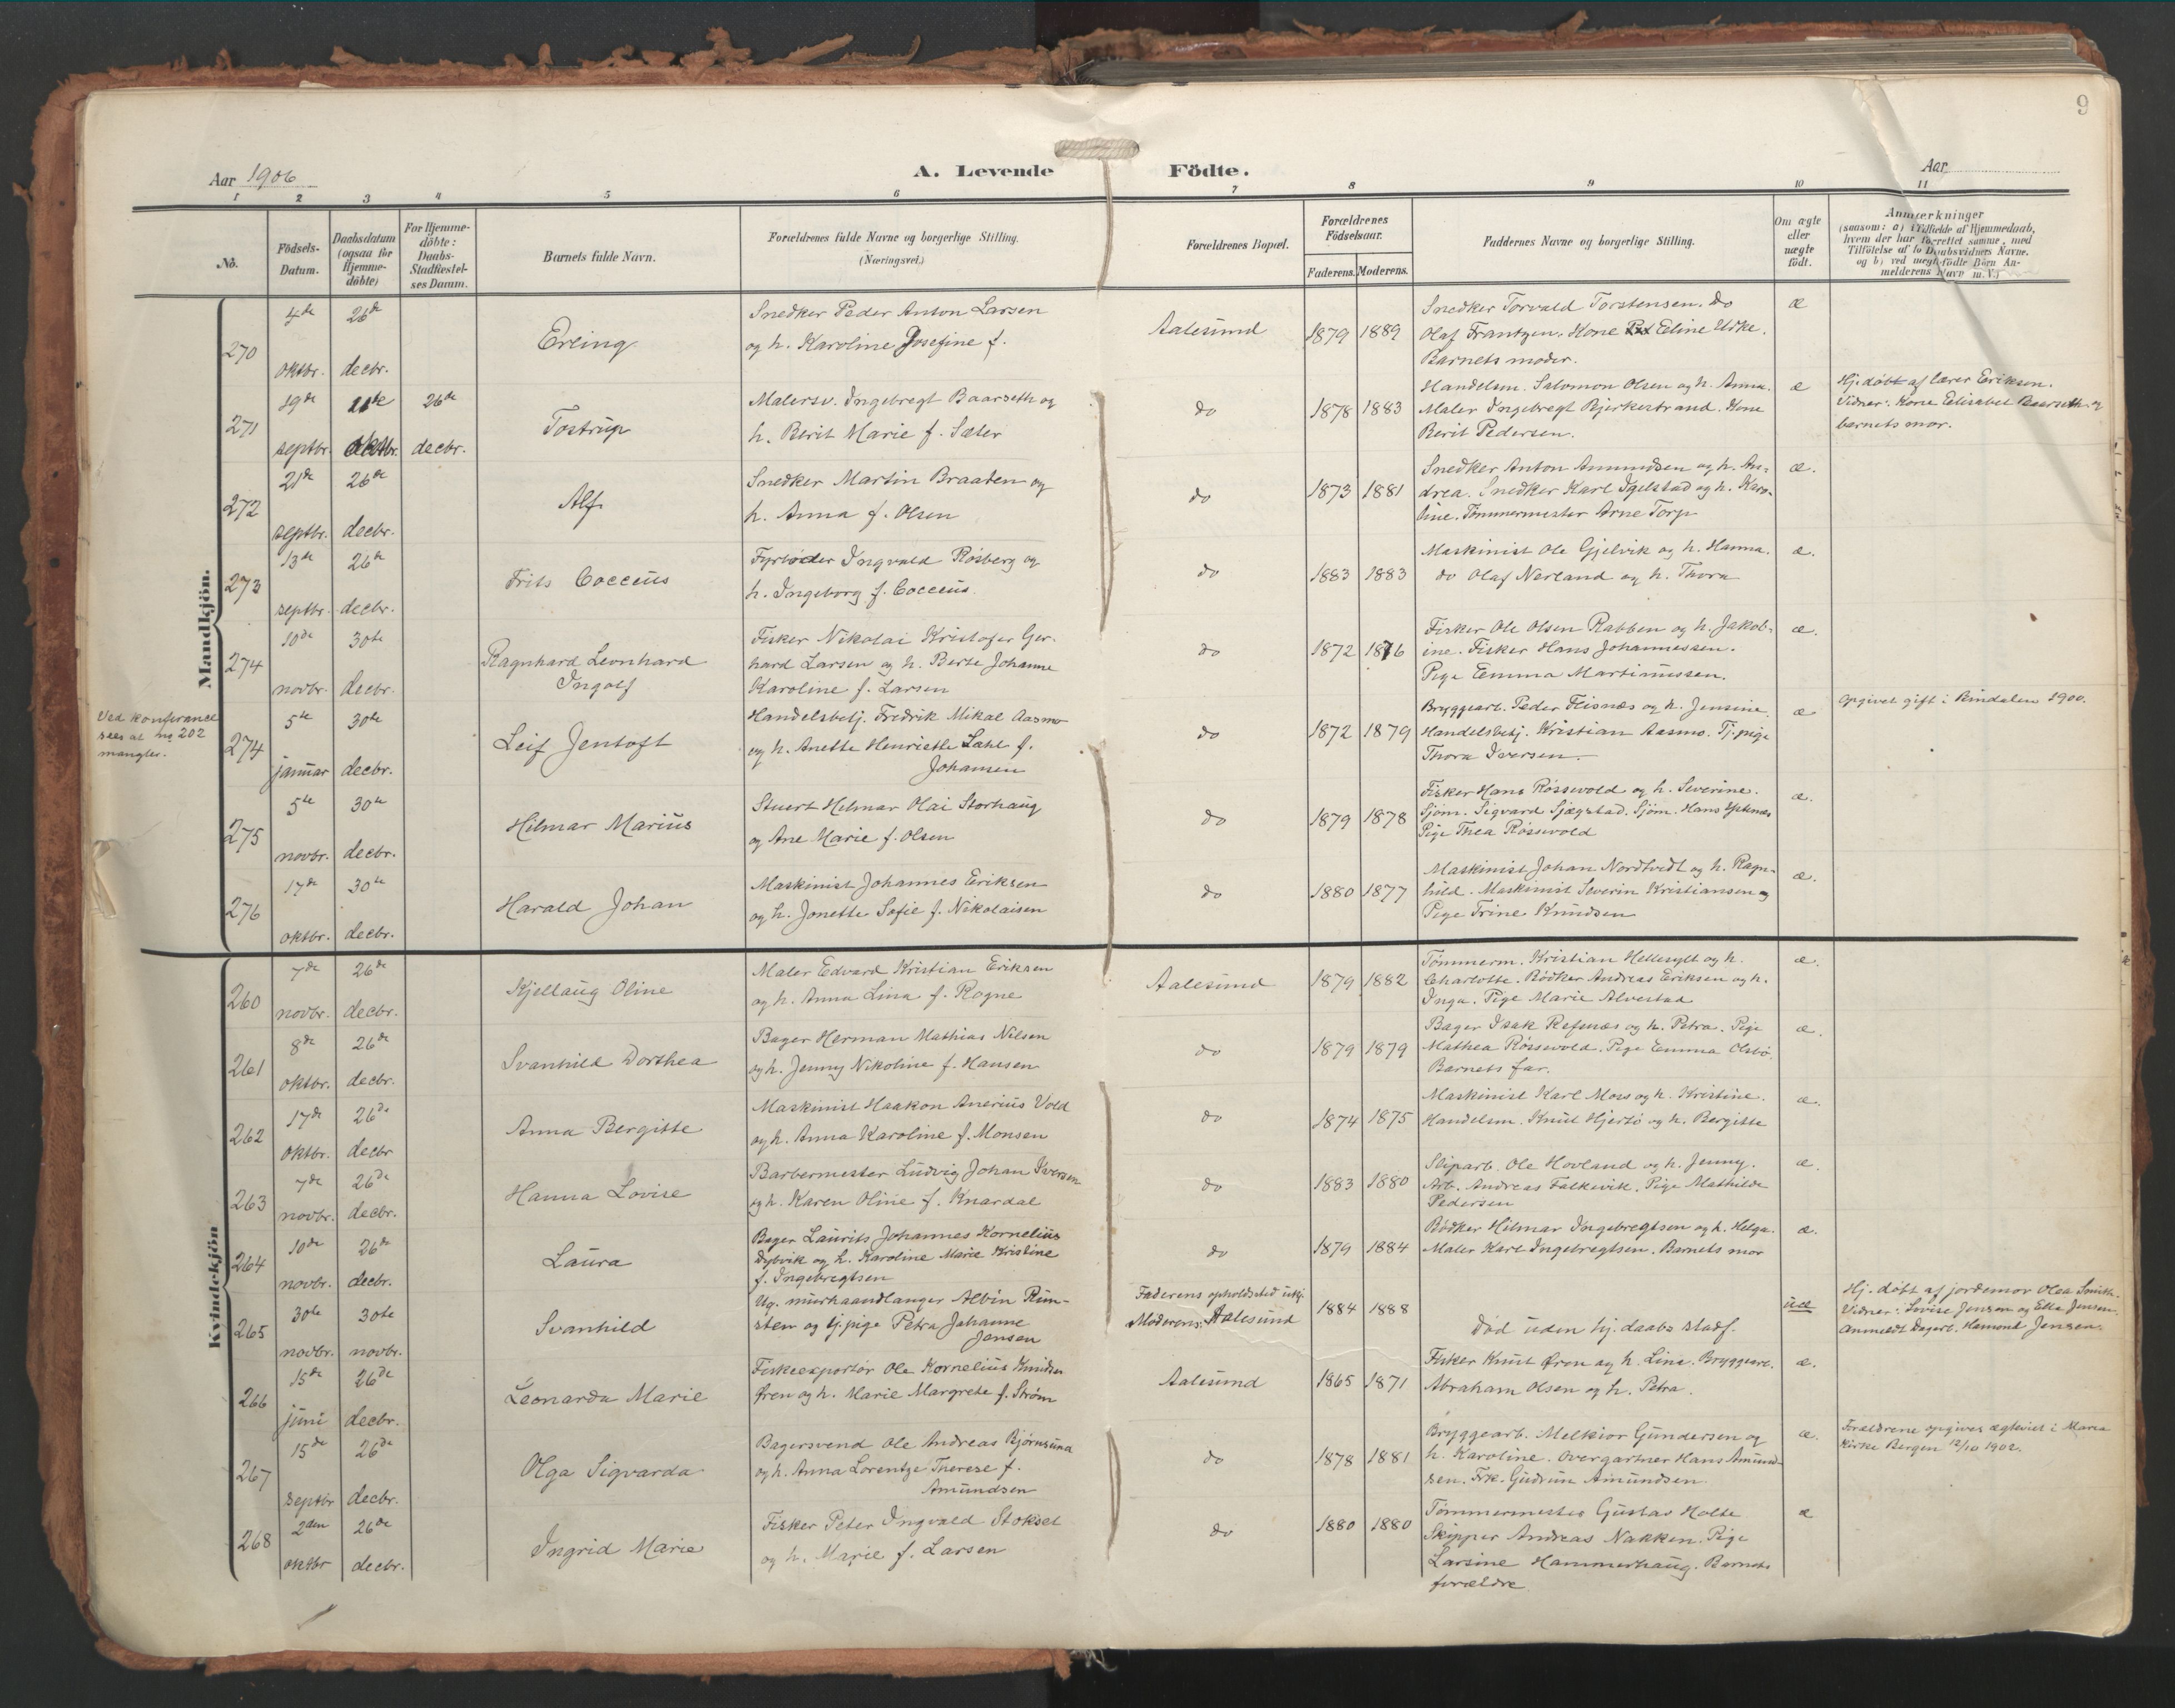 9
Aar 1906
A. Levende Födte.
Aar
1 2 3 4 5 6 7 8 9 10 11
No.
Födsels-Datum.
Daabsdatum (ogsaa for Hjemme-döbte)
For Hjemme-döbte: Daabs-Stadfæstel-ses Datum.
Barnets fulde Navn.
Forældrenes fulde Navne og borgerlige Stilling. (Næringsvei.)
Forældrenes Bopæl.
Forældrenes Födselsaar.
Faderens. Moderens.
Faddernes Navne og borgerlige Stilling.
Om ægte eller uægte födt.
Anmærkninger
(saasom: a) i Tilfælde af Hjemmedaab,
hvem der har forrettet samme, med
Tilföielse af to Daabsvidners Navne.
og b) ved uægtefödte Börn An-
melderens Navn m. V.)
Mandkjön.
270
4de oktbr.
26de decbr.
Erling
Snedker Peder Anton Larsen
og h. Karoline Josefine f.
Aalesund
1879 1889
Snedker Torvald Torstensen. do
Olaf Frantzen. Kone Eline Urke.
Barnets moder.
æ
271
19de septbr.
26de decbr.
Tostrup
Malersv. Ingebregt Baarseth og
h. Berit Marie f. Sæter
do
1878 1883
Handelsm. Salomon Olsen og h. Anna.
Maler Ingebregt Bjerkestrand. Kone
Berit Pedersen.
æ
Hj. döbt af lærer Eriksen.
Vidner: Kone Elisabet Baarseth og
barnets mor.
272
21de septbr.
26de decbr.
Alf
Snedker Martin Braaten og
h. Anna f. Olsen
do
1873 1881
Snedker Anton Amundsen og h. An-
drea. Snedker Karl Igelstad og h. Karo-
line. Tömmermester Arne Torp
æ.
273
13de septbr.
26de decbr.
Frits Cocceus
Fyrböder Ingvald Rösberg og
h. Ingeborg f. Cocceus.
do
1883 1883
Maskinist Ole Gjelvik og h. Hanna.
do Olaf Nerland og h. Thora
æ.
274
10de novbr.
30te decbr.
Ragnhard Leonhard
Ingolf
Fisker Nikolai Kristofer Ger-
hard Larsen og h. Berte Johanne
Karoline f. Larsen
do
1872 1876
Fisker Ole Olsen Rabben og h. Jakob-
ine. Fisker Hans Johannessen.
Pige Emma Martinussen.
æ.
Ved konferance
sees at no 202
mangler.
274
5te januar
30te decbr.
Leif Jentoft
Handelsbetj. Fredrik Mikal Aasmo
og h. Anette Henriette Lahl f.
Johansen
do
1872 1879
Bryggearb. Peder Flisnæs og h. Jensine.
Handelsbetj. Kristian Aasmo. Tj. pige
Thora Iversen.
æ
Opgivet gift i Rindalen 1900.
275
5te novbr.
30te decbr.
Hilmar Marius
Stuert Hilmar Olai Storhaug
og Ane Marie f. Olsen
do
1879 1878
Fisker Hans Rössevold og h. Severine.
Sjöm. Sigvard Sjægstad. Sjöm. Hans
Pige Thea Rössevold
æ.
276
17de oktbr.
30te decbr.
Harald Johan
Maskinist Johannes Eriksen
og h. Jonette Sofie f. Nikolaisen
do
1880 1877
Maskinist Johan Nordtvedt og h. Ragn-
hild. Maskinist Severin Kristiansen og
Pige Trine Knudsen
æ.
Kvindekjön
260
7de novbr.
26de decbr.
Kjellaug Oline
Maler Edvard Kristian Eriksen
og h. Anna Lina f. Rogne
Aalesund
1879 1882
Tömmerm. Kristian Hellesylt og h.
Charlotte. Bödker Andreas Eriksen og h.
Inga. Pige Marie Alvestad
æ.
261
8de oktbr.
26de decbr.
Svanhild Dorthea
Bager Herman Mathias Nilsen
og h. Jenny Nikoline f. Hansen
do
1879 1879
Bager Isak Refsnæs og h. Petra. Pige
Mathea Rössevold. Pige Emma Olsbö.
Barnets far.
æ.
262
17de oktbr.
26de decbr
Anna Bergitte
Maskinist Haakon Anerius Vold
og h. Anna Karoline f. Monsen
do
1874 1875
Maskinist Karl Moss og h. Kristine.
Handelsm. Knut Hjertö og h. Bergitte
æ.
263
7de novbr.
26de decbr.
Hanna Lovise
Barbermester Ludvig Johan Iversen
og h. Karen Oline f. Knardal
do
1883 1880
Sliparb. Ole Hovland og h. Jenny.
Arb. Andreas Falkevik. Pige Mathilde
Pedersen
æ.
264
10de novbr.
26de decbr.
Laura
Bager Laurits Johannes Kornelius
Dybvik og h. Karoline Marie Kristine
f. Ingebregtsen
do
1879 1884
Bödker Hilmar Ingebregtsen og h. Helga.
Maler Karl Ingebregtsen. Barnets mor
æ.
265
30te novbr.
30te novbr.
Svanhild
Ug. murhaandlanger Albin Run-
sten og tj. pige Petra Johanne
Jensen
Faderens opholdssted ukj.
Moderens: Aalesund
1884 1888
Död uden hj. daabs stadf.
uæ
Hj. döbt af jordemor Olea Smith.
Vidner: Lovise Jensen og Ella Jensen.
Anmeldt Dagarb. Hamond Jensen.
266
15de juni
26de decbr.
Leonarda Marie
Fiskeexportör Ole Kornelius Knudsen
Øren og h. Marie Margrete f. Ström
Aalesund
1865 1871
Fisker Knut Øren og h. Line. Bryggearb.
Abraham Olsen og h. Petra.
æ.
267
15de septbr
26de decbr.
Olga Sigvarda
Bagersvend Ole Andreas Björnsund
og h. Anna Lorentze Therese f.
Amundsen
do
1878 1881
Bryggearb. Melkior Gundersen og
h. Karoline. Overgartner Hans Amund-
sen. Frk. Gudrun Amundsen.
æ.
Forældrene opgives ægteviet i Maria
Kirke Bergen 12/10 1902.
268
2den oktbr
26de decbr.
Ingrid Marie
Fisker Peter Ingvald Stokset
og h. Marie f. Larsen
do
1880 1880
Tömmermester Gustav Holte
Skipper Andreas Nakken. Pige
Larsine Hammerhaug. Barnets
forældre.
æ